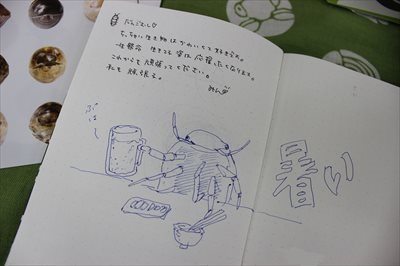 だんごむし
ちっちゃい生き物はかわいくて好きです。
一生懸命 生きてる姿は応援したくなります。
これからも頑張ってください。
私も頑張る。
みん
ぷはー
暑い